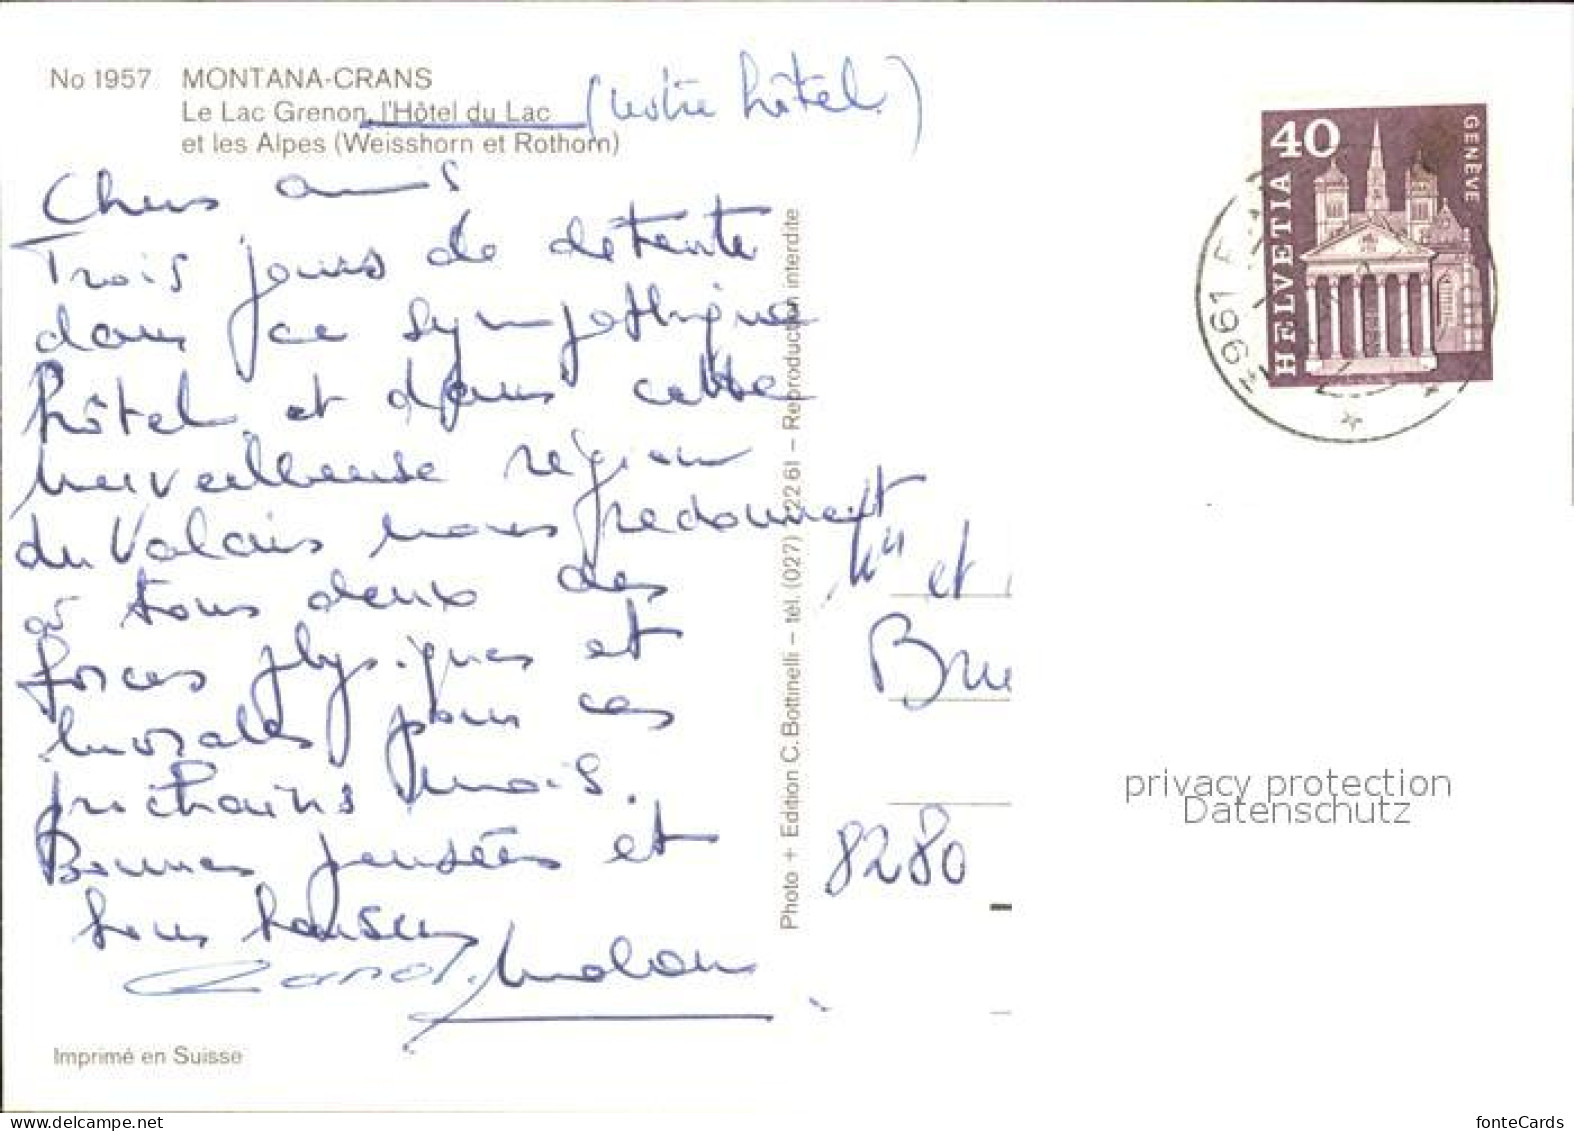 No 1957 MONTANA-CRANS
Le Lac Grenon, l'Hôtel du Lac (notre hôtel)
et les Alpes (Weisshorn et Rothorn)
Chers amis
Trois jours de détente
dans ce sympathique
hôtel et dans cette
merveilleuse région
du Valais nous redonnent
à tous deux des
forces physiques et
morales pour ces
prochains mois.
Bonnes pensées et
bons baisers
Imprimé en Suisse
Photo + Edition C. Bottinelli – tél. (027) 7 22 61 – Reproduction interdite
40
HELVETIA
GENÈVE
3961
et
8280
privacy protection
Datenschutz
fonteCards
www.delcampe.net